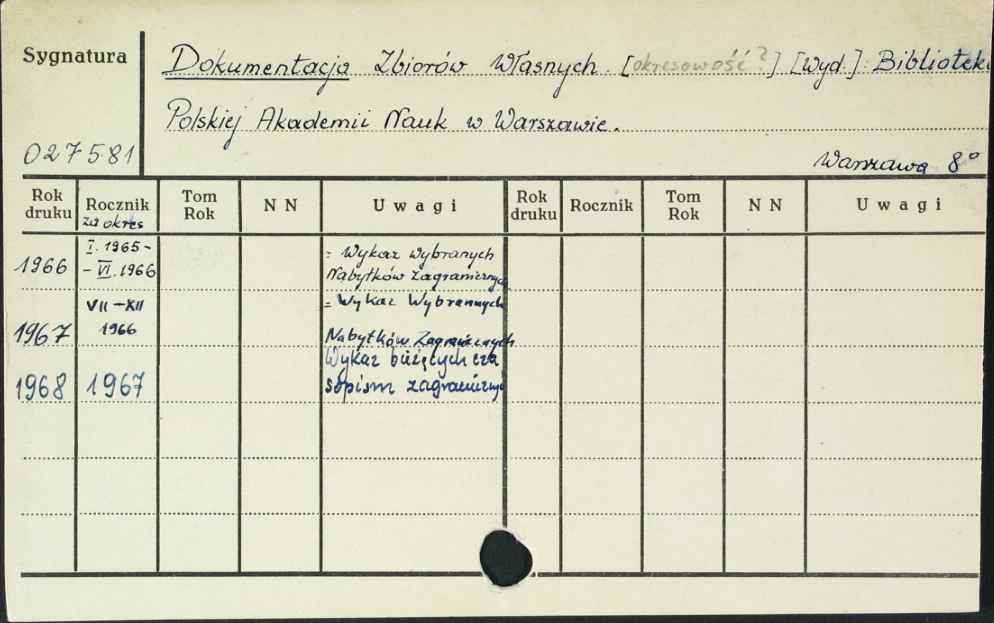 Sygnatura
Dokumentacja Zbiorów Własnych [okresowość?] [Wyd.] Bibliotek
Polskiej Akademii Nauk w Warszawie.
027581
Warszawa 8°
Rok druku Rocznik Tom Rok NN Uwagi Rok druku Rocznik Tom Rok NN Uwagi
za okres
I. 1965 - = Wykaz wybranych
1966 - VI. 1966 Nabytków zagranicznych
VII - XII = Wykaz Wybrannych
1967 1966 Nabytków Zagranicznych
Wykaz bieżących cza
1968 1967 sopism zagranicznych